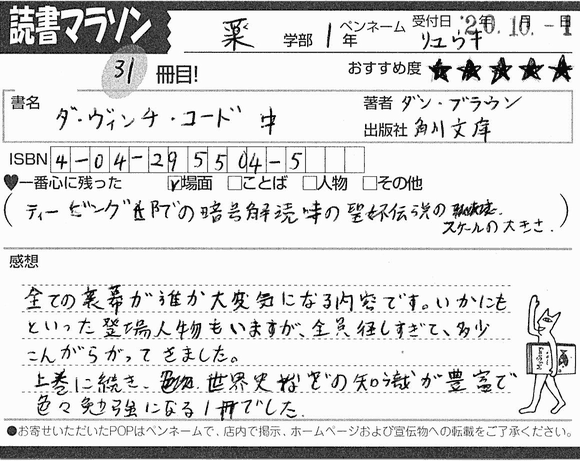 読書マラソン
薬 学部 1年 ペンネーム リュウキ 受付日 '20.10.-1
31 冊目! おすすめ度 ★★★★★
書名 ダ・ヴィンチ・コード 中
著者 ダン・ブラウン
出版社 角川文庫
ISBN 4-04-295504-5
♥一番心に残った ☑場面 □ことば □人物 □その他
(ティービング邸での暗号解読時の聖杯伝説の
スケールの大きさ.)
感想
全ての裏幕が誰か大変気になる内容です。いかにも
といった登場人物もいますが、全員怪しすぎて、多少
こんがらがってきました。
上巻に続き、世界史などの知識が豊富で
色々勉強になる1冊でした.
●お寄せいただいたPOPはペンネームで、店内で掲示、ホームページおよび宣伝物への転載をご了承ください。